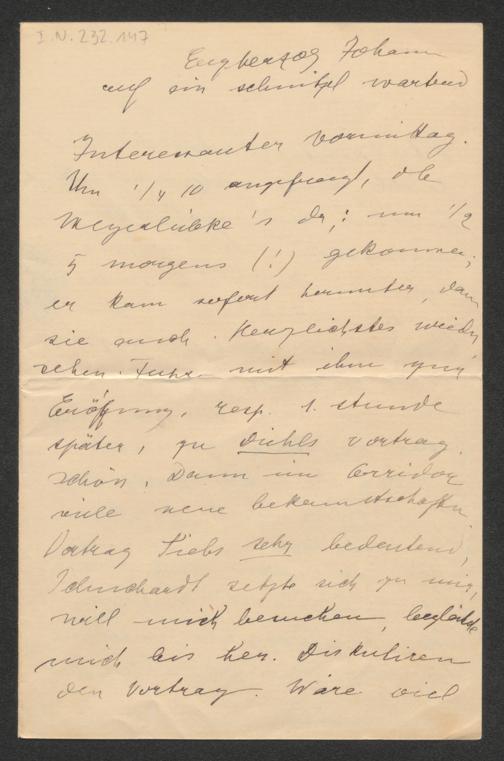 I.N. 232.147
Erzherzog Johann
auf ein schnitzel wartend
Interessanter Vormittag.
Um 1/4 10 angefragt, ob
Meyerlübke's da; um 1/2
5 morgens (!) gekommen;
er kam sofort herunter, dann
sie auch. Herzlichstes wieder
sehen. Fuhr mit ihm zur
Eröffnung, resp. 1. stunde
später, zu Diehls vortrag.
schön. Dann im Corridor
viele neue bekanntschaften
Vortrag Siebs sehr bedeutend,
Schuchardt setzte sich zu mir,
will mich besuchen, begleitete
mich bis her. Diskutiren
den Vortrag. Wäre viel